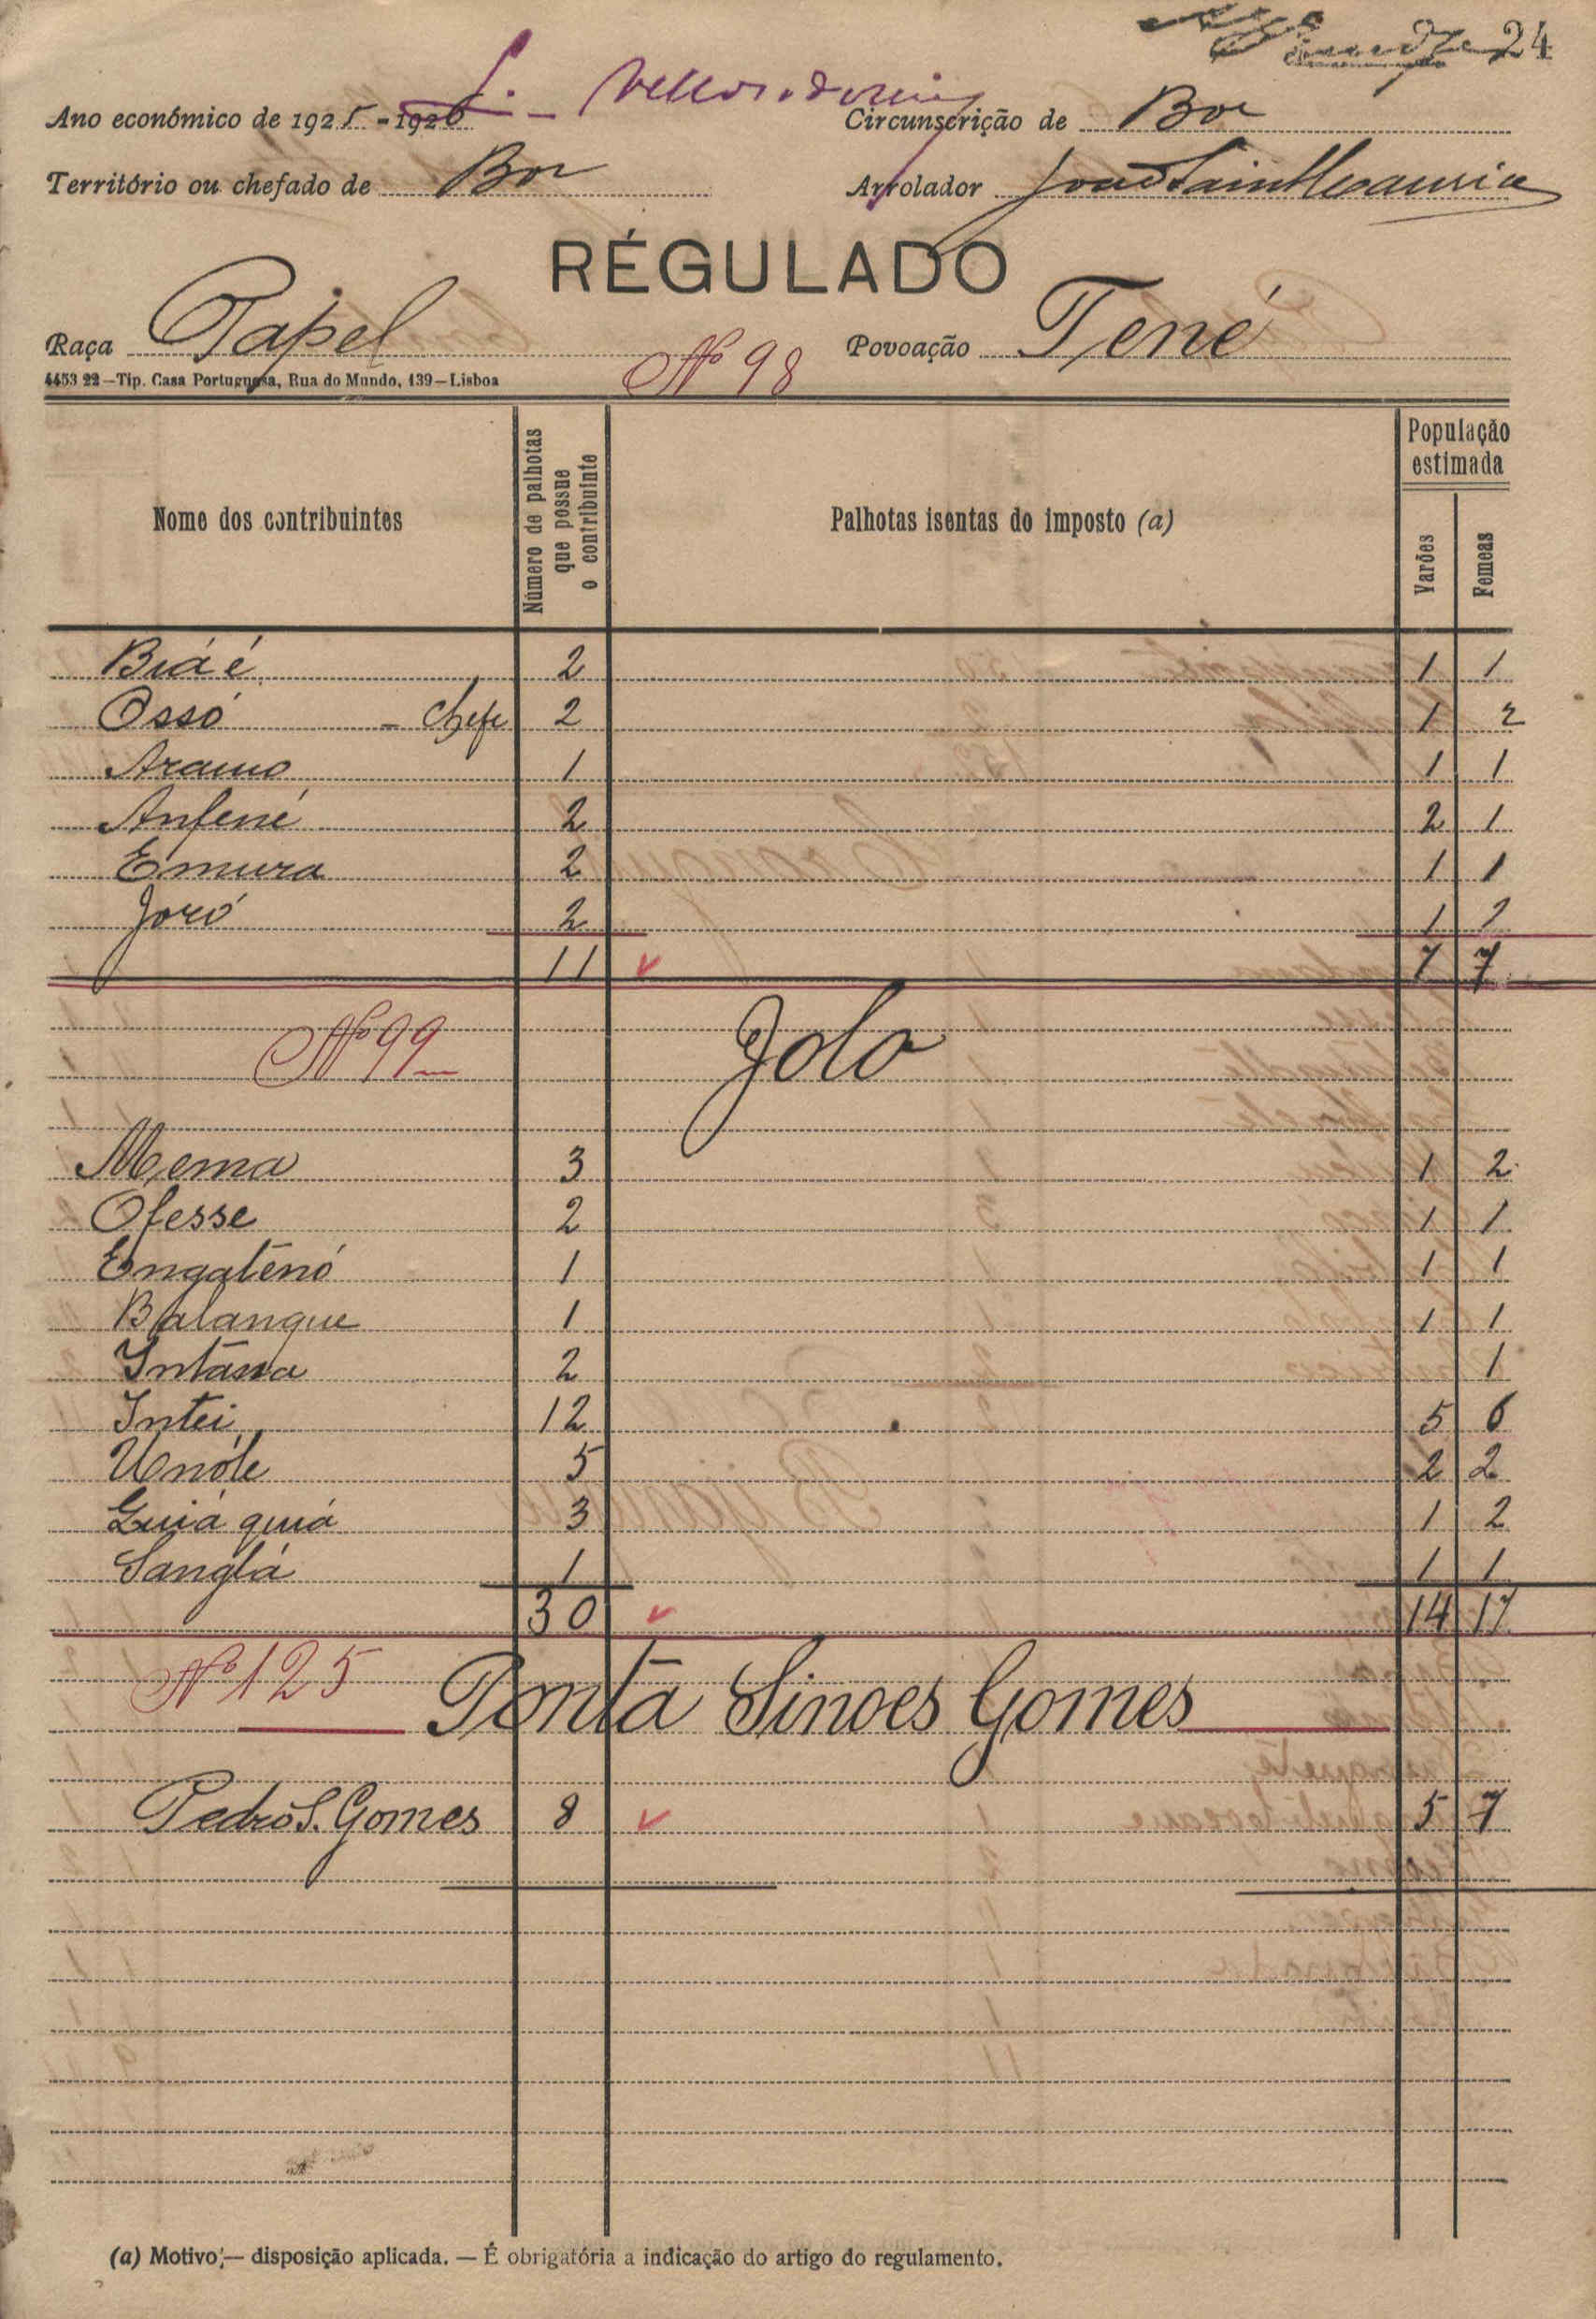 24
Ano económico de 1925 - 1926 Circunscrição de Bor
Território ou chefado de Bor Arrolador
RÉGULADO
Raça Papel Nº 98 Povoação Tené
4453 22—Tip. Casa Portuguesa, Rua do Mundo, 139—Lisboa
Nome dos contribuintes Número de palhotas que possue o contribuinte Palhotas isentas do imposto (a) População estimada Varões Femeas
Biáé 2 1 1
Ossó - Chefe 2 1 2
Aramo 1 1 1
Anfené 2 2 1
Emura 2 1 1
Joró 2 1 1
11 7 7
Nº 99 Jolo
Mema 3 1 2
Ofesse 2 1 1
Engatenó 1 1 1
Balanque 1 1 1
Intāma 2 1
Intei 12 5 6
Unóle 5 2 2
Guiá quiá 3 1 2
Sanglá 1 1 1
30 14 17
Nº 125 Ponta Sinoes Gomes
Pedro S. Gomes 8 5 7
(a) Motivo;— disposição aplicada. — É obrigatória a indicação do artigo do regulamento.